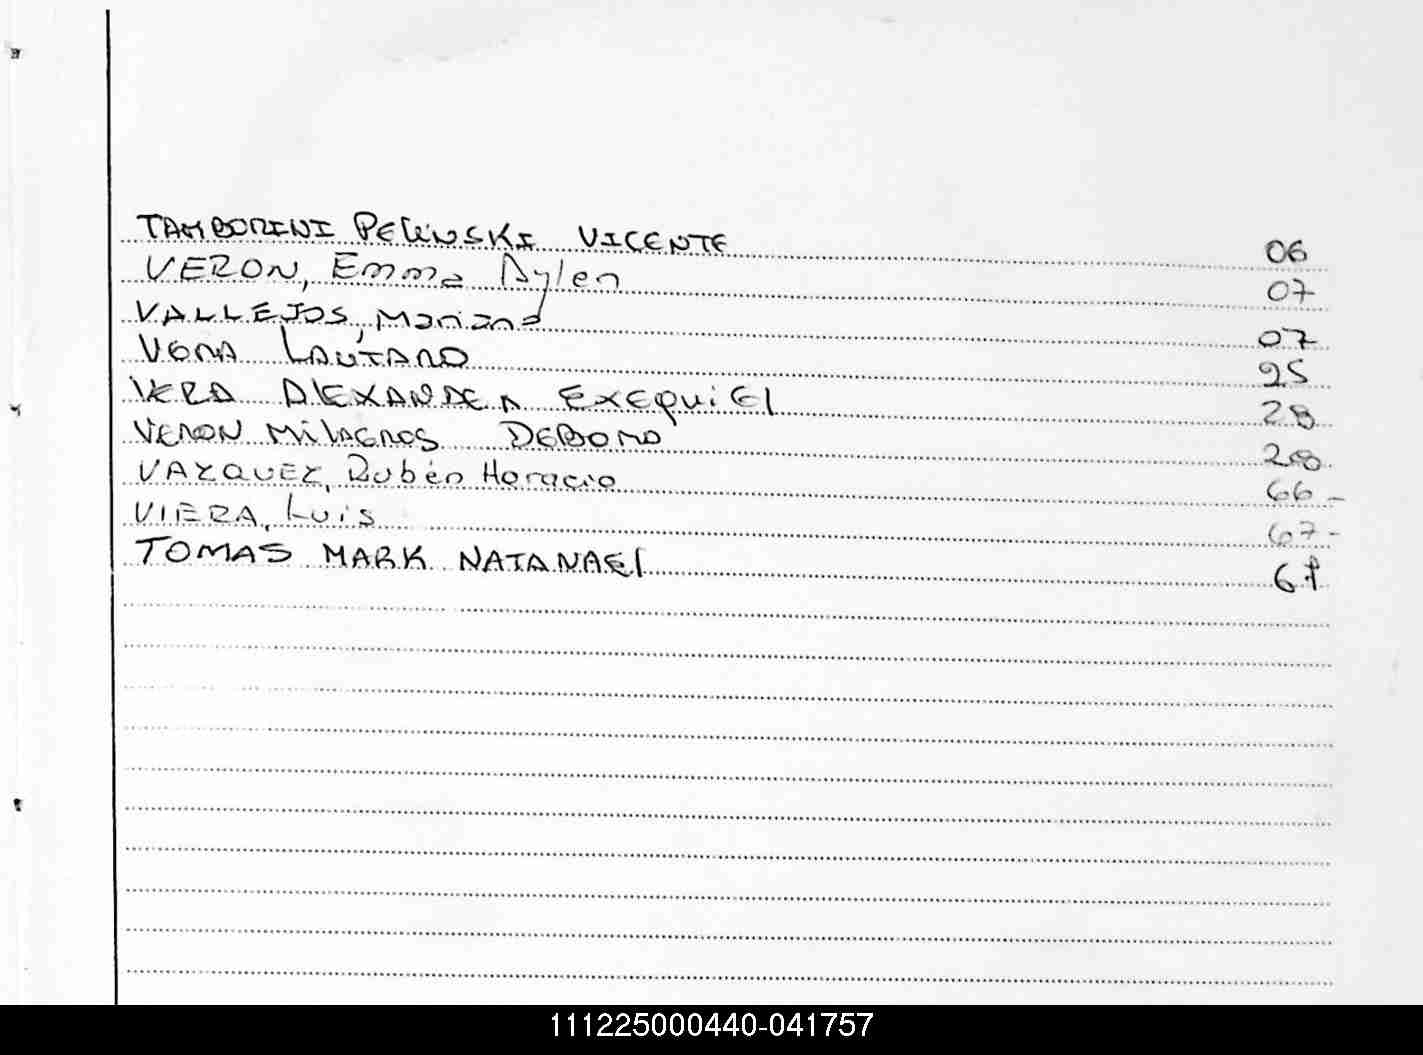 TAMBORINI PELINSKI VICENTE 06
VERON, Emma Aylen 07
VALLEJOS, Mariano 07
VERA LAUTARO 25
VERA ALEXANDER EXEQUIEL 28
VERON MILAGROS DEBORA 28
VAZQUEZ, Rubén Horacio 66 -
VIERA, Luis 67 -
TOMAS MARK NATANAEL 67
111225000440-041757